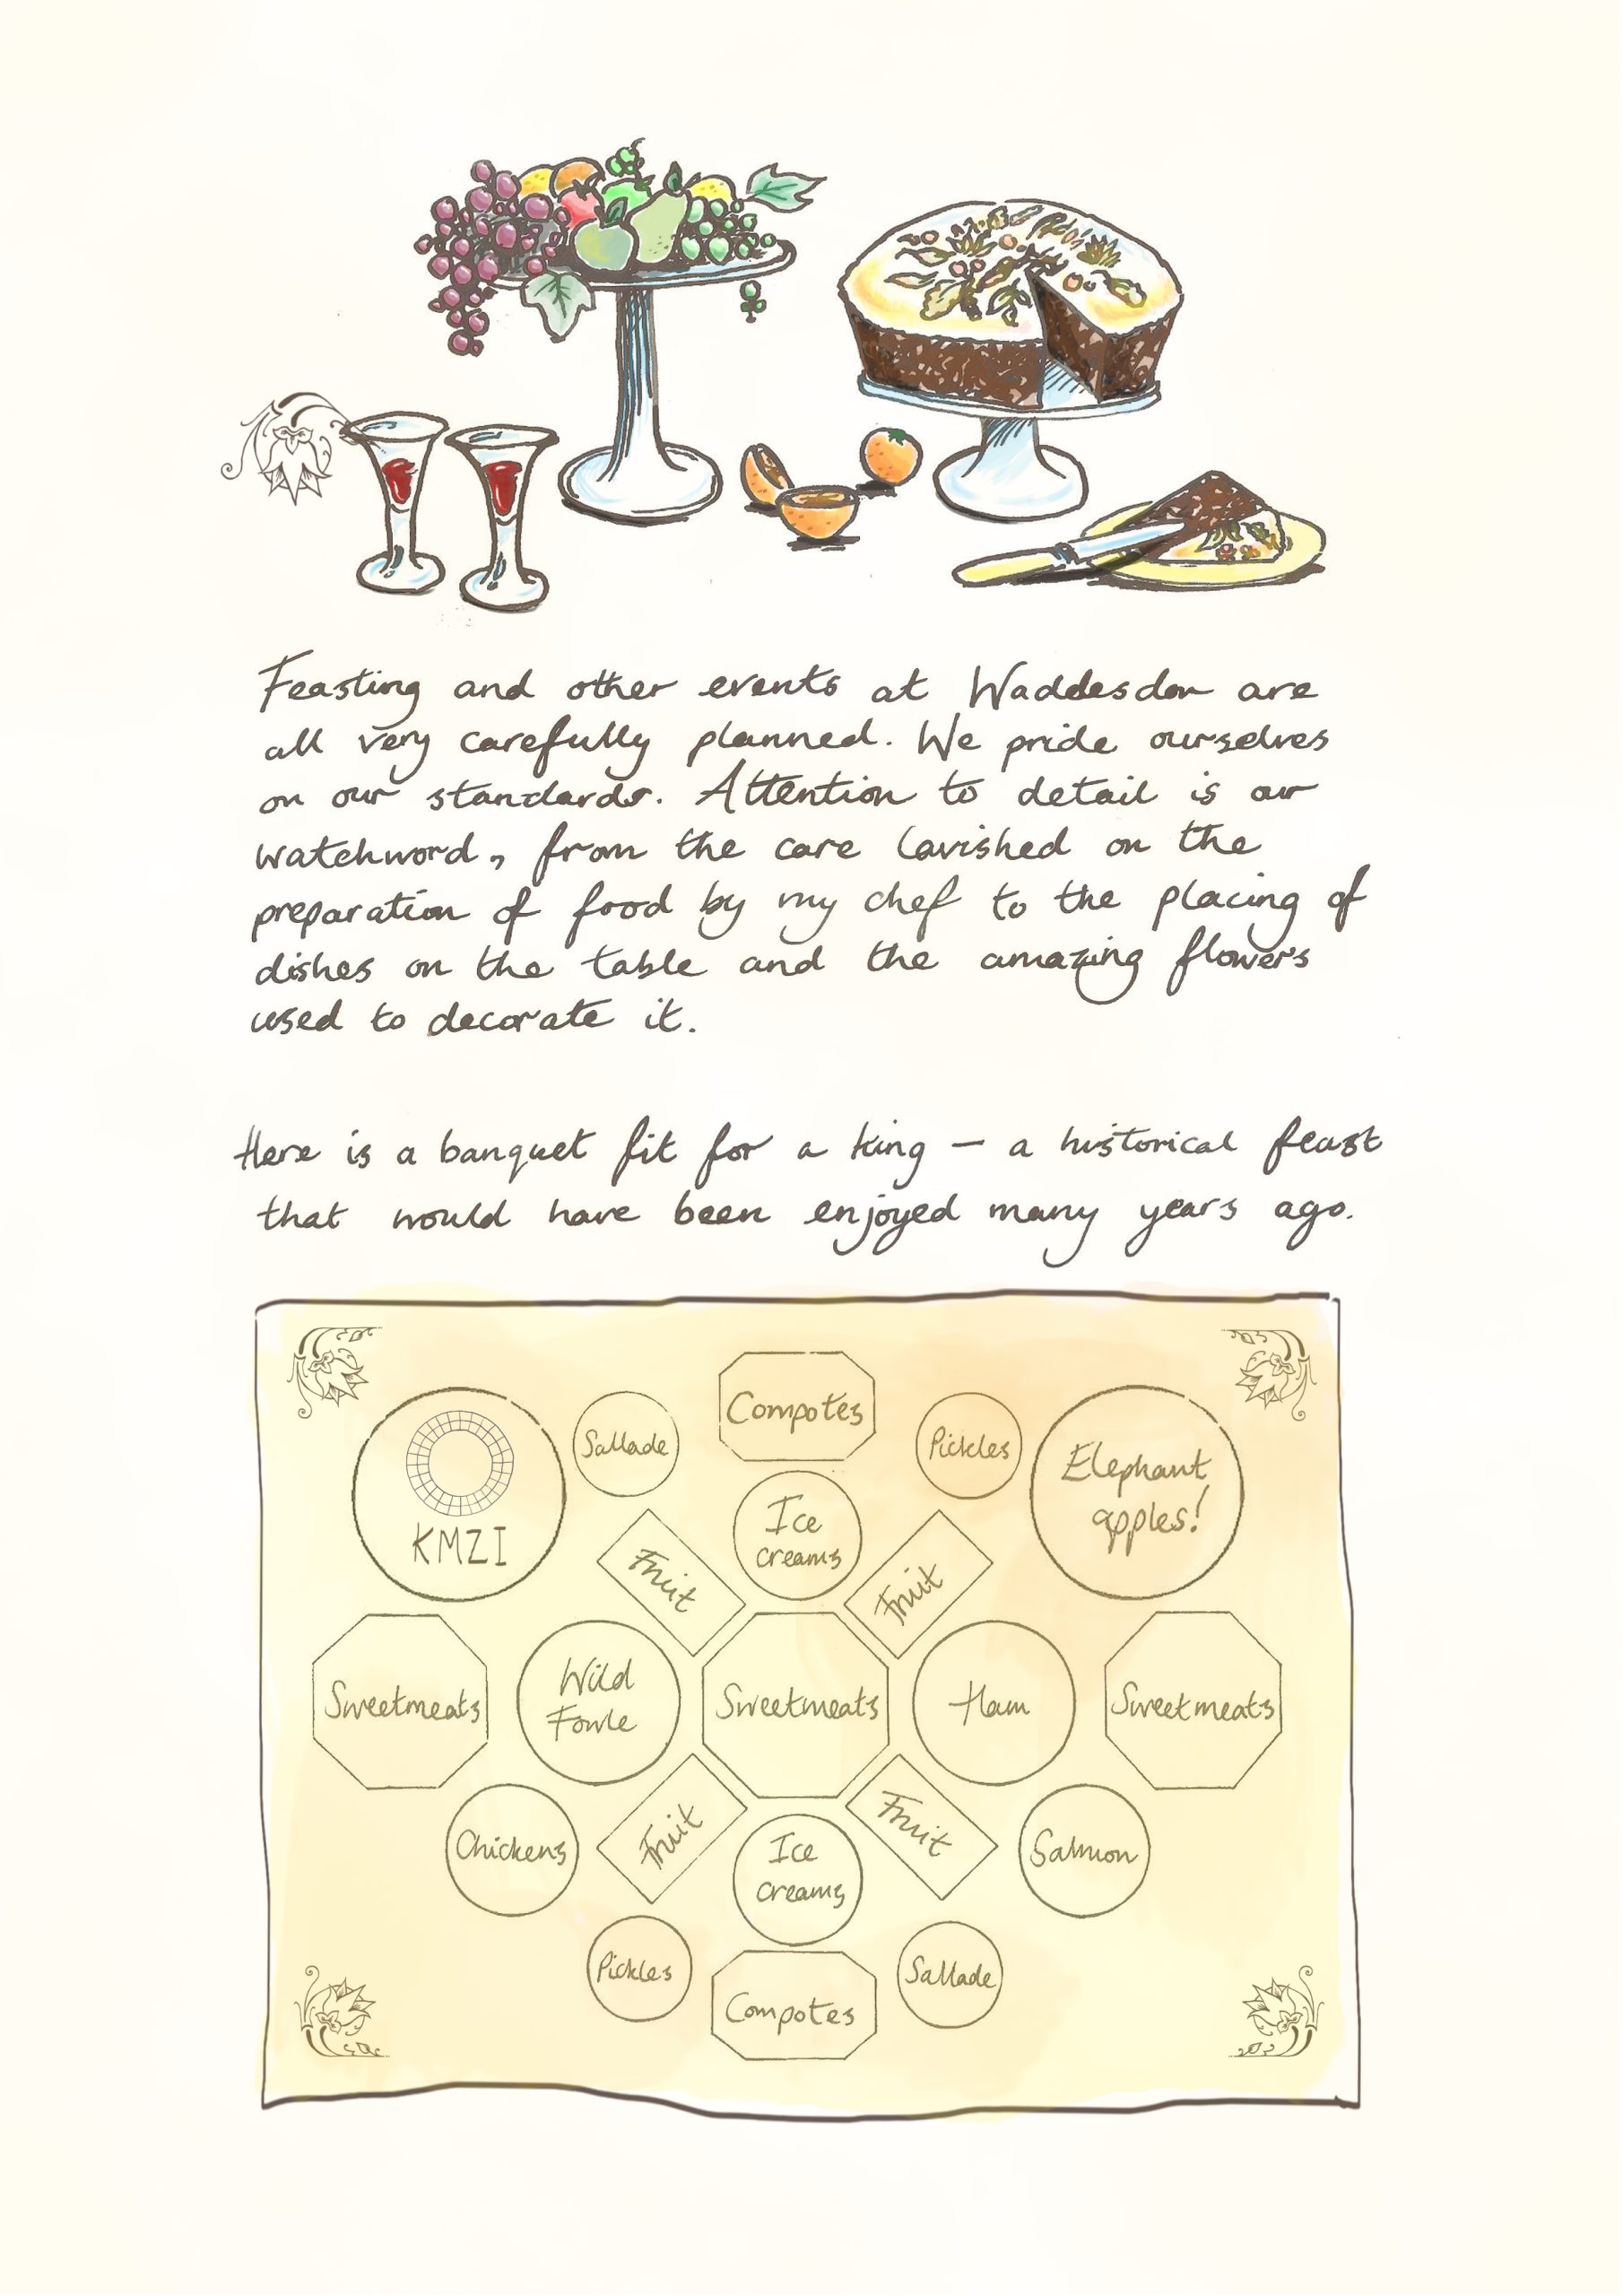 Feasting and other events at Waddesdon are
all very carefully planned. We pride ourselves
on our standards. Attention to detail is our
watchword, from the care lavished on the
preparation of food by my chef to the placing of
dishes on the table and the amazing flowers
used to decorate it.
Here is a banquet fit for a king – a historical feast
that would have been enjoyed many years ago.
Compotes
Sallade
Pickles
KMZI
Elephant
apples!
Ice
creams
Fruit
Fruit
Sweetmeats
Wild
Fowle
Sweetmeats
Ham
Sweetmeats
Chickens
Fruit
Ice
creams
Fruit
Salmon
Pickles
Compotes
Sallade